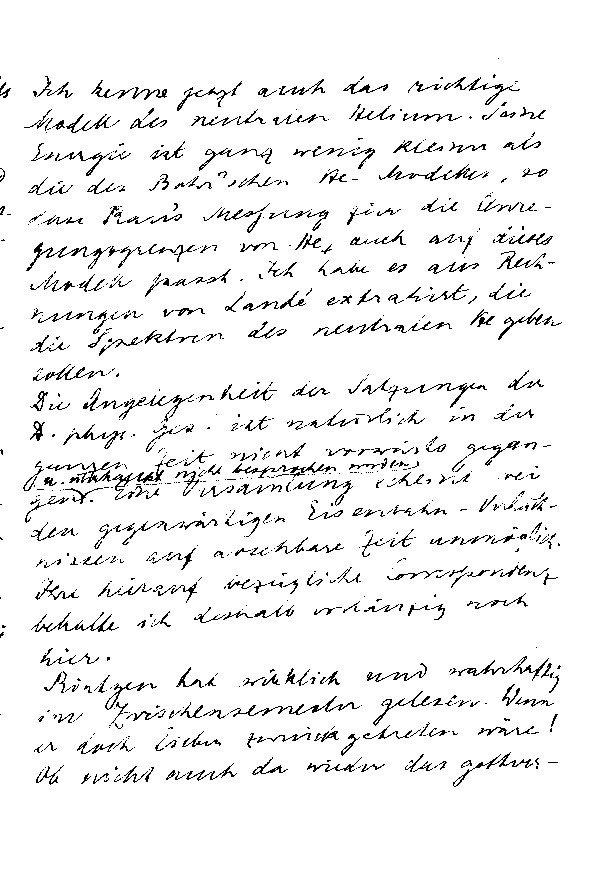 Ich kenne jetzt auch das richtige
Modell des neutralen Helium. Seine
Energie ist ganz wenig kleiner als
die des Bohr'schen He-Modelles, so
dass Rau's Messung für die Anre-
gungsgrenzen von He, auch auf dieses
Modell passt. Ich habe es aus Rech-
nungen von Landé extrahirt, die
die Spektren des neutralen He geben
sollen.
Die Angelegenheit der Satzungen der
D. phys. Ges. ist natürlich in der
ganzen Zeit nicht vorwärts gegan-
u. nicht besprochen worden
gen. Eine Versamlung scheint bei
den gegenwärtigen Eisenbahn-Verhält-
nissen auf absehbare Zeit unmöglich.
Ihre hierauf bezügliche Correspondenz
behalte ich deshalb vorläufig noch
hier.
Röntgen hat wirklich und wahrhaftig
im Zwischensemester gelesen. Wenn
er doch lieber zurückgetreten wäre!
Ob nicht auch da wieder das gottver-